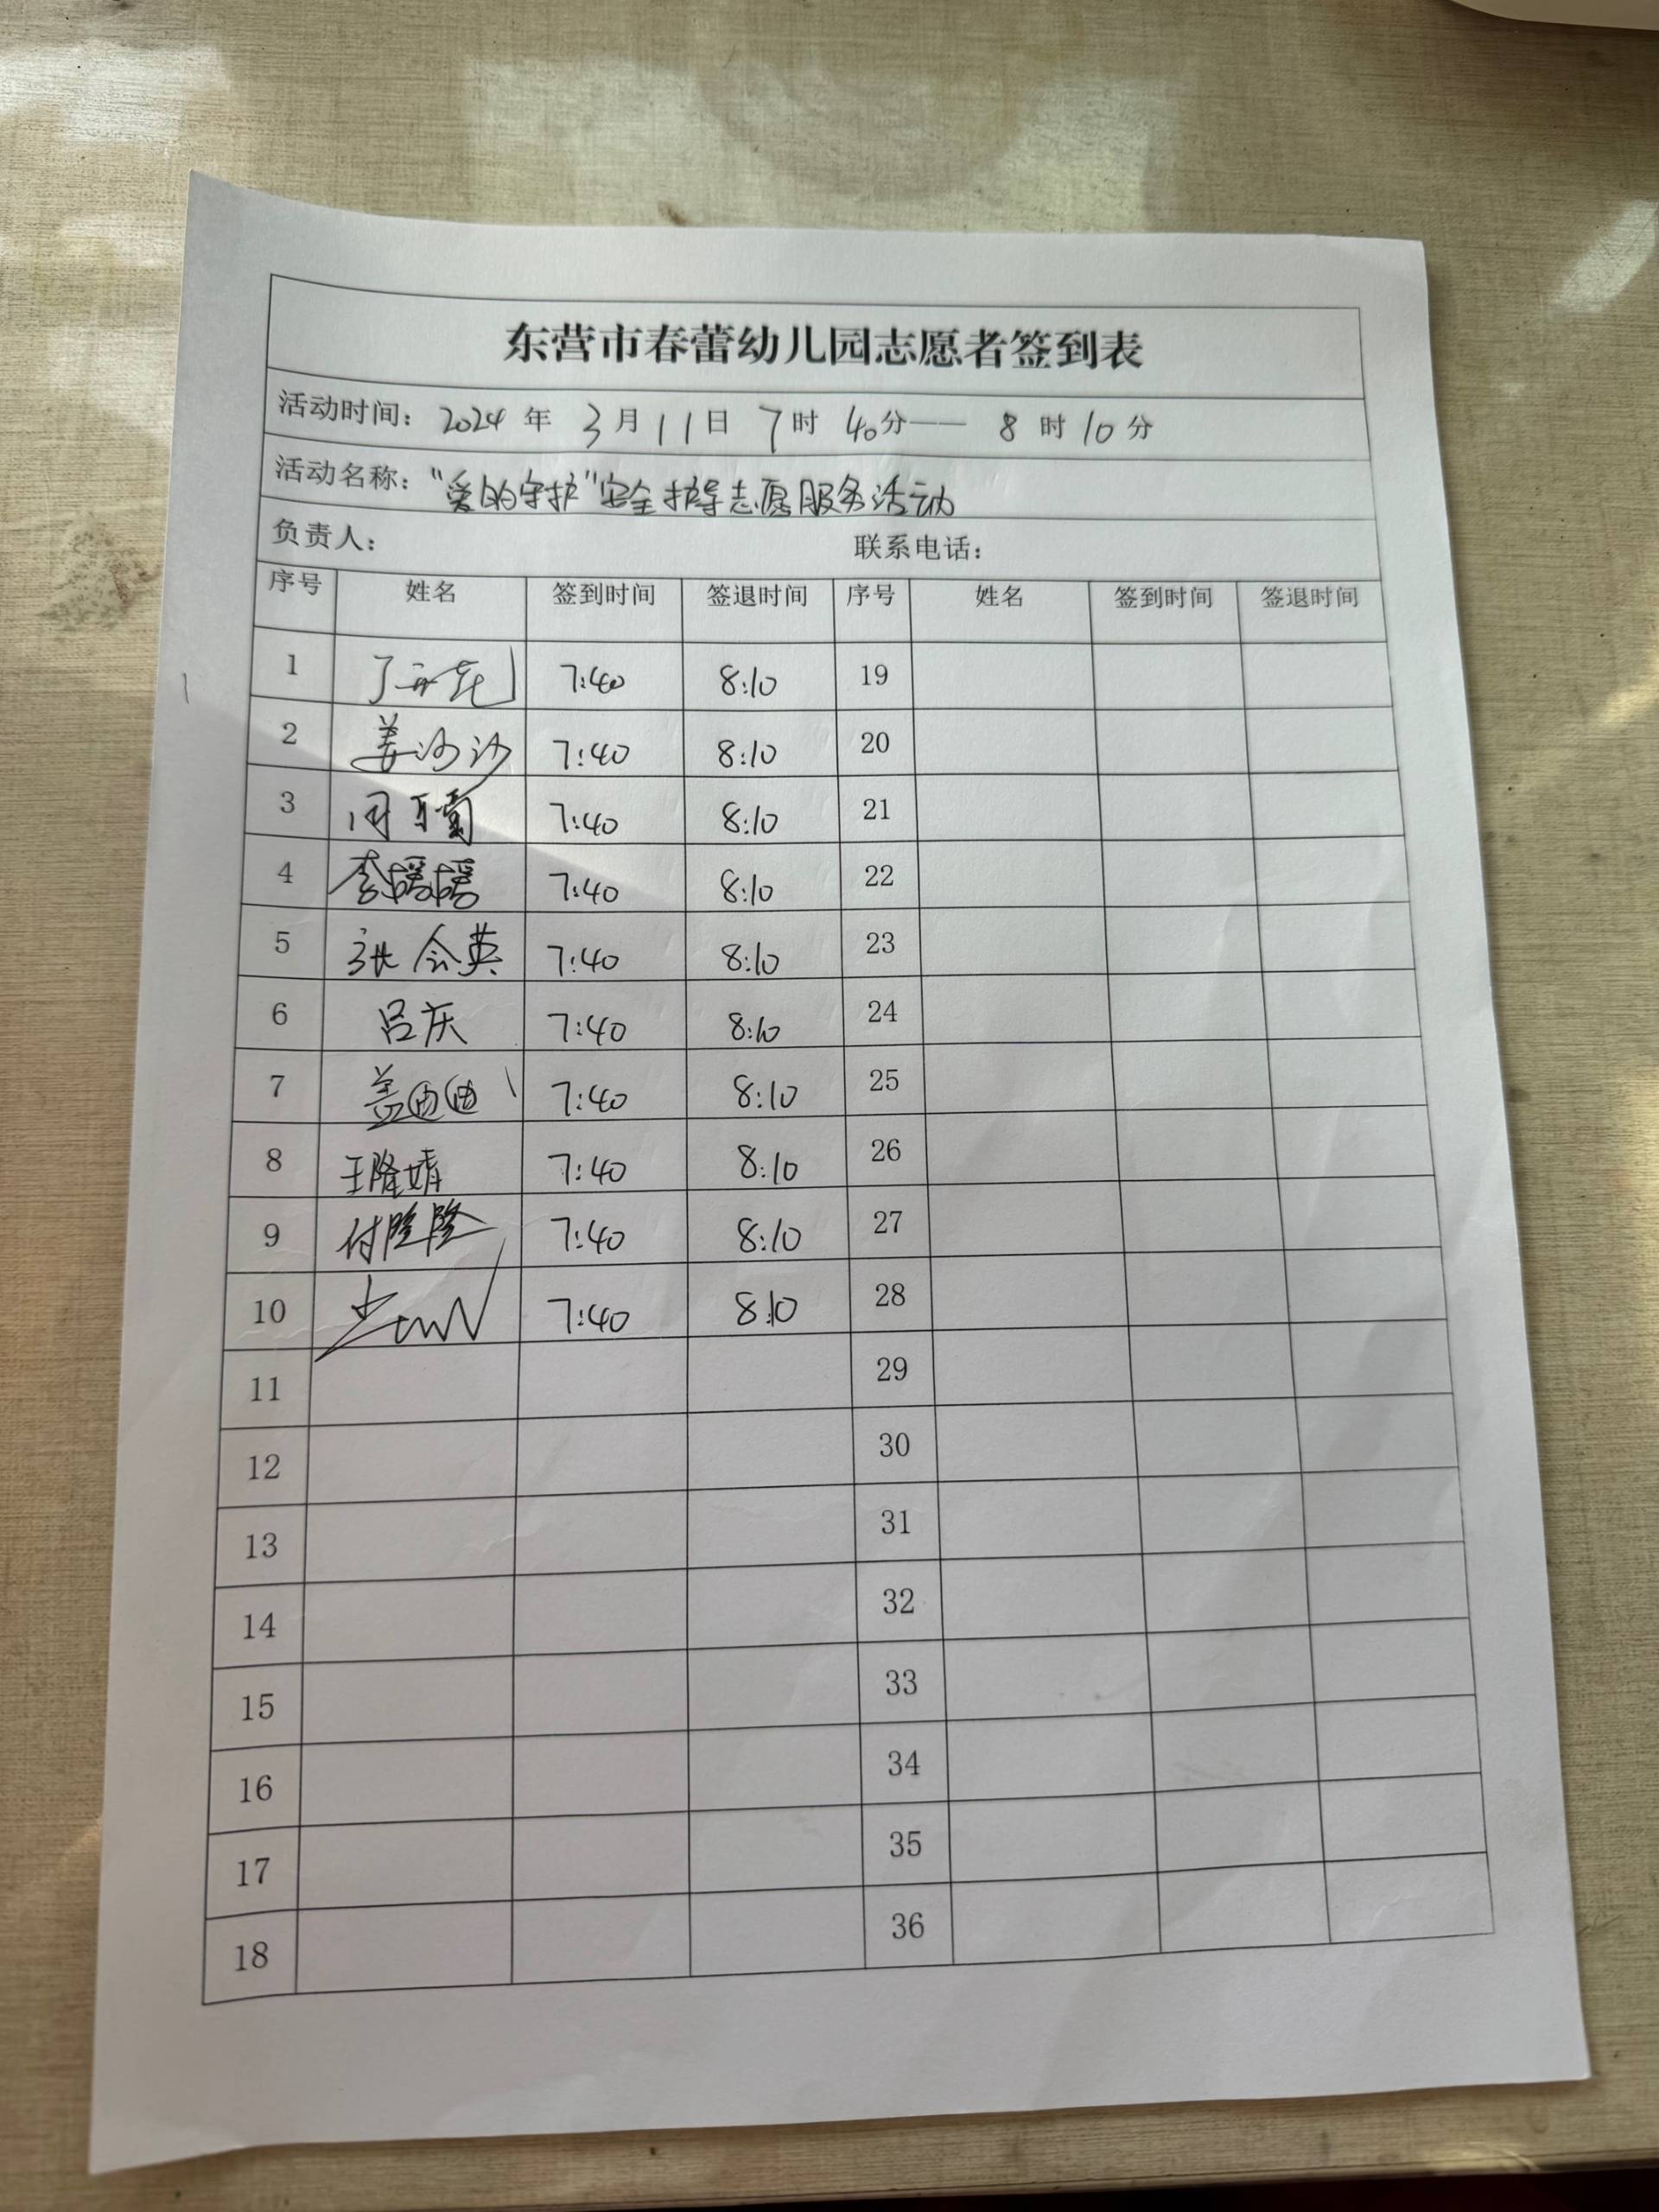 东营市春蕾幼儿园志愿者签到表
活动时间：2024 年 3月11日 7时 40分—— 8 时 10 分
活动名称："爱的守护"安全护导志愿服务活动
负责人： 联系电话：
序号 姓名 签到时间 签退时间 序号 姓名 签到时间 签退时间
1 7:40 8:10 19
2 姜沙沙 7:40 8:10 20
3 周 7:40 8:10 21
4 李媛媛 7:40 8:10 22
5 张会英 7:40 8:10 23
6 吕庆 7:40 8:10 24
7 盖迪迪 7:40 8:10 25
8 王隆婧 7:40 8:10 26
9 付隆隆 7:40 8:10 27
10 7:40 8:10 28
11 29
12 30
13 31
14 32
15 33
16 34
17 35
18 36